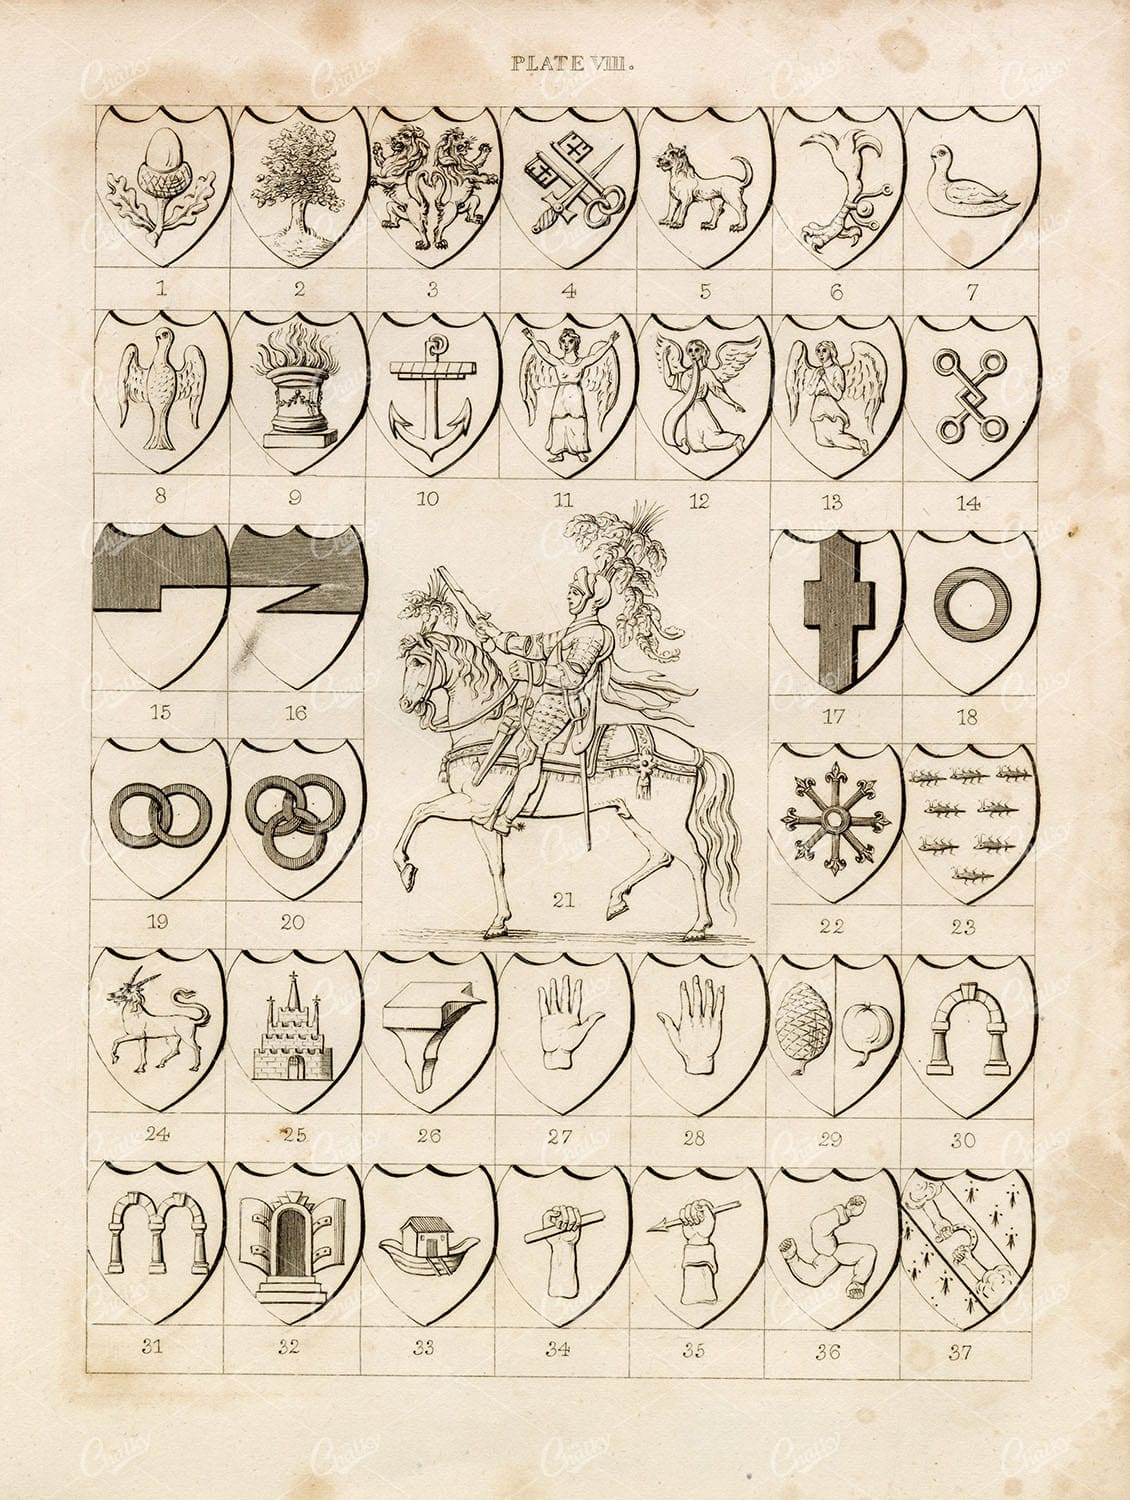 PLATE VIII.
1 2 3 4 5 6 7
8 9 10 11 12 13 14
15 16 17 18
21
19 20 22 23
24 25 26 27 28 29 30
31 32 33 34 35 36 37
Chalky